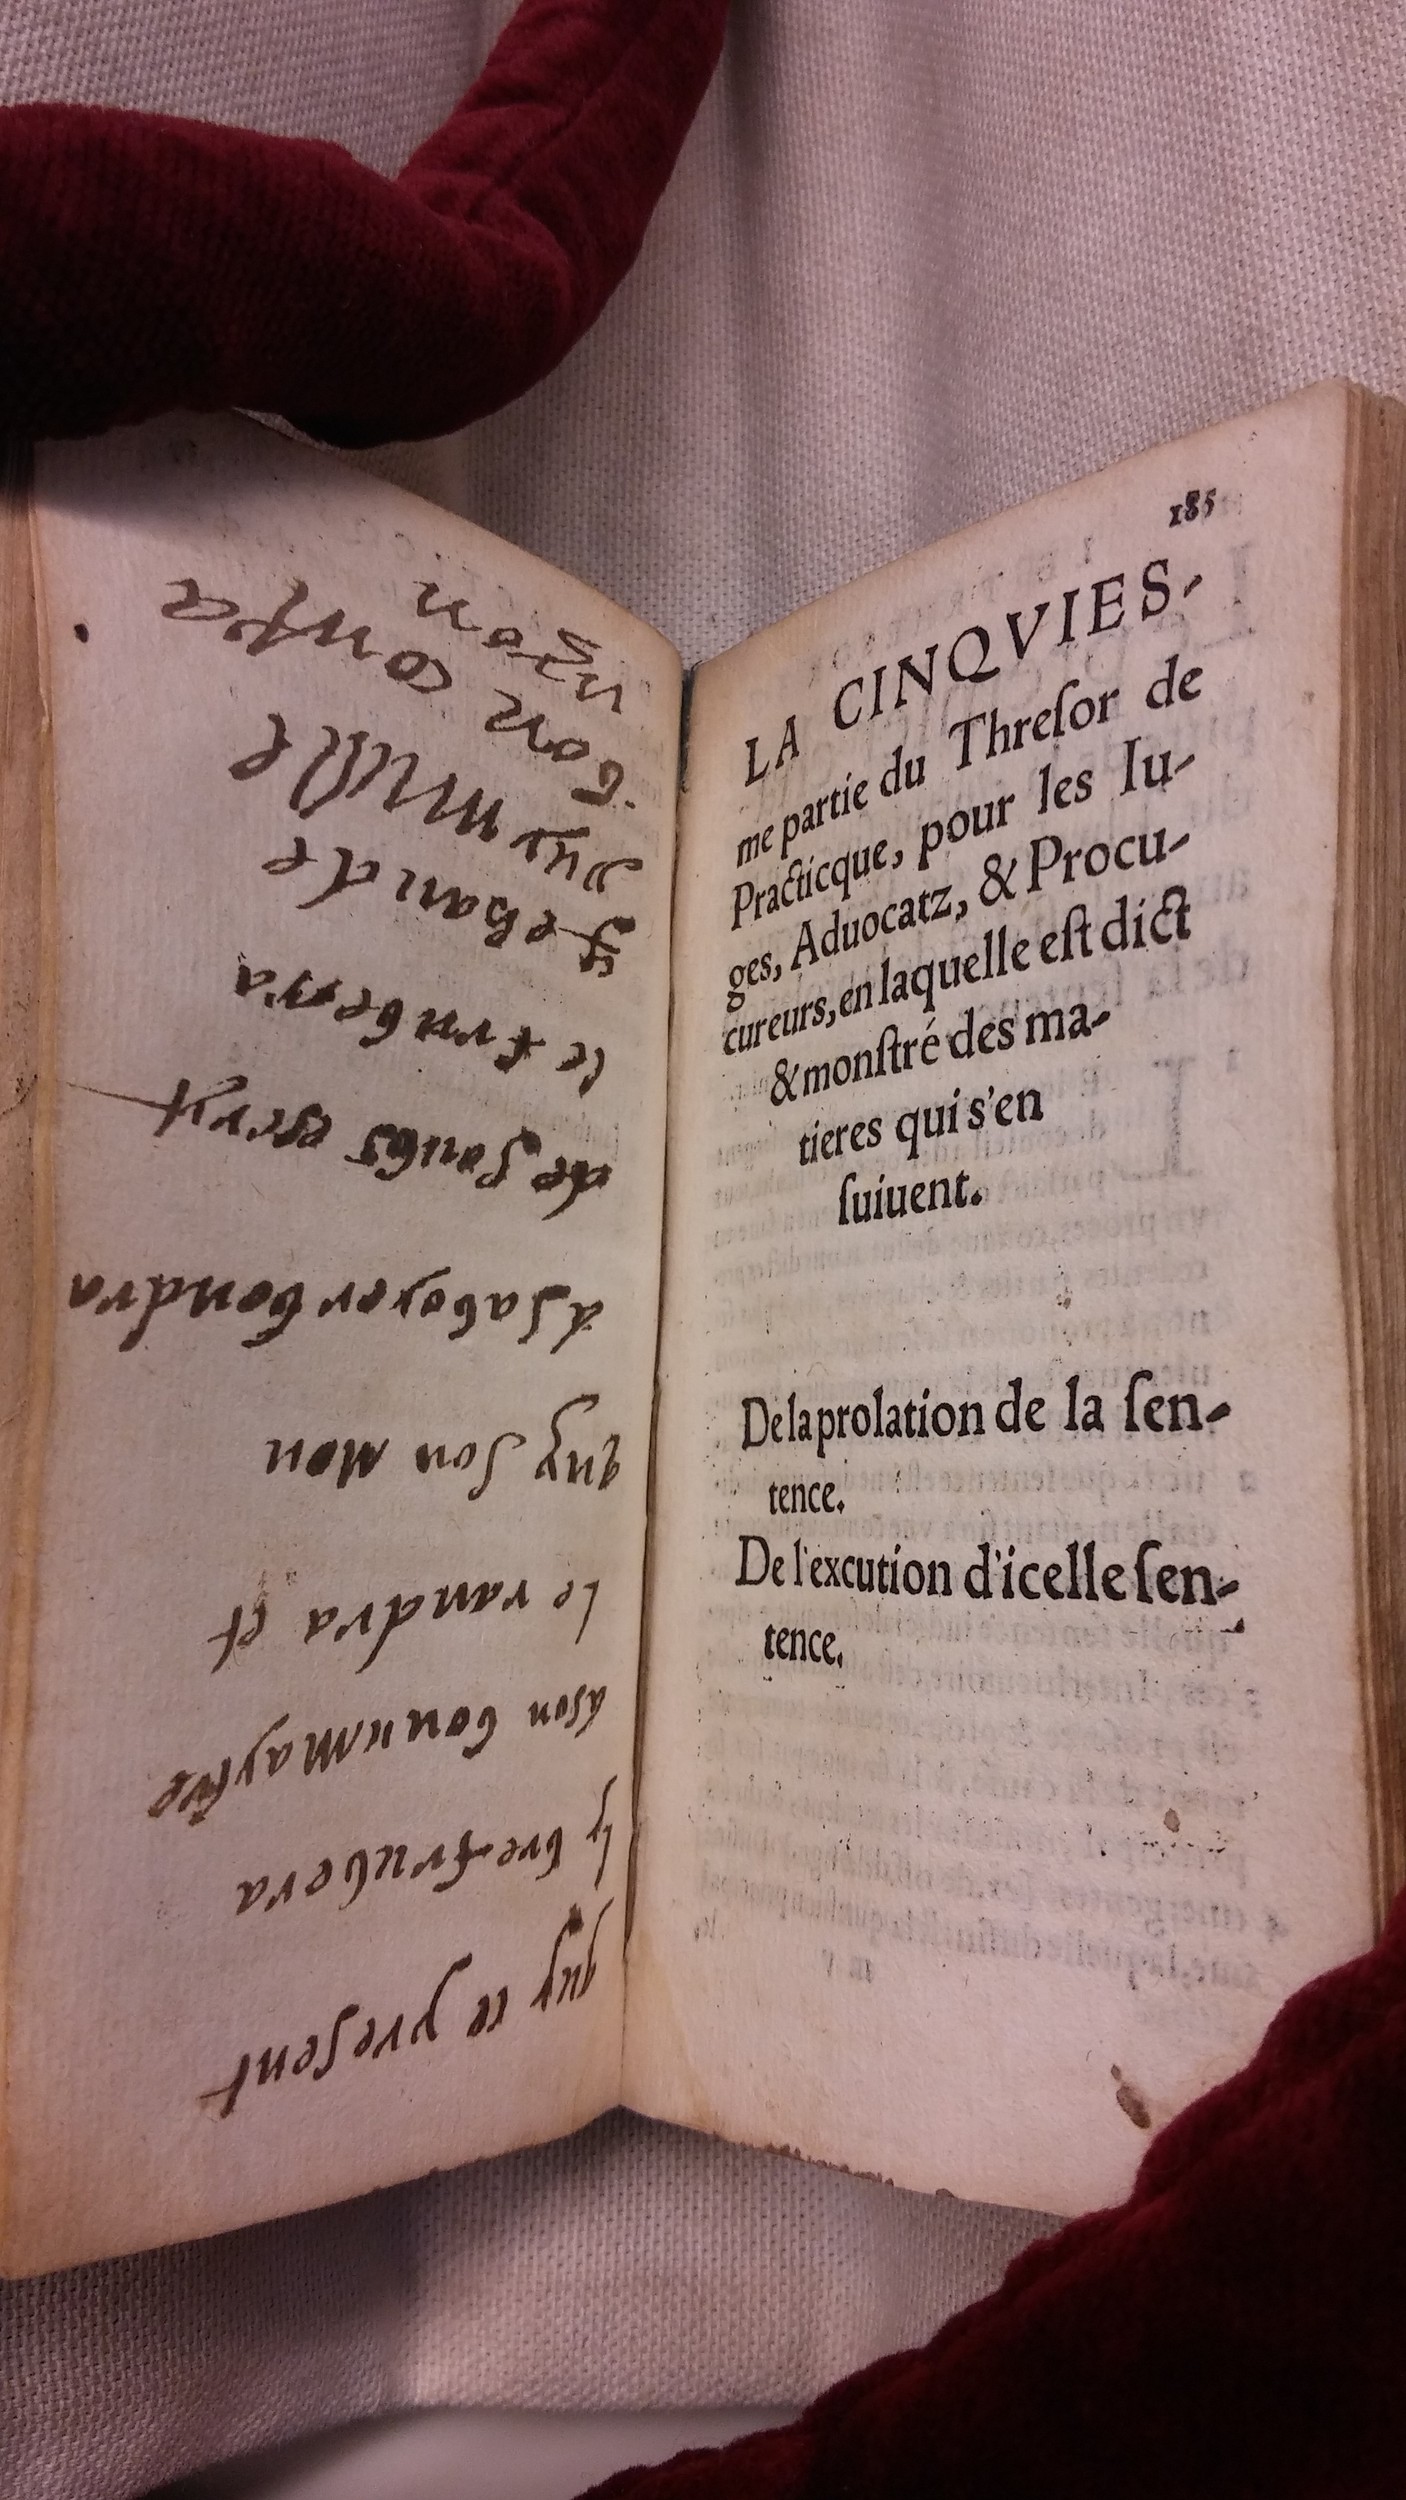 quy ce present
lyvre truvera
a son bon maystre
le randra et
quy son mon
a savoyer vondra
de soubs escryt
le truveya
Jehan de
mille
bon
185
LA CINQVIES-
me partie du Threſor de
Practicque, pour les Iu-
ges, Aduocatz, & Procu-
cureurs, en laquelle eſt dict
& monſtré des ma-
tieres qui s'en
ſuiuent.
De la prolation de la ſen-
tence.
De l'excution d'icelle ſen-
tence.